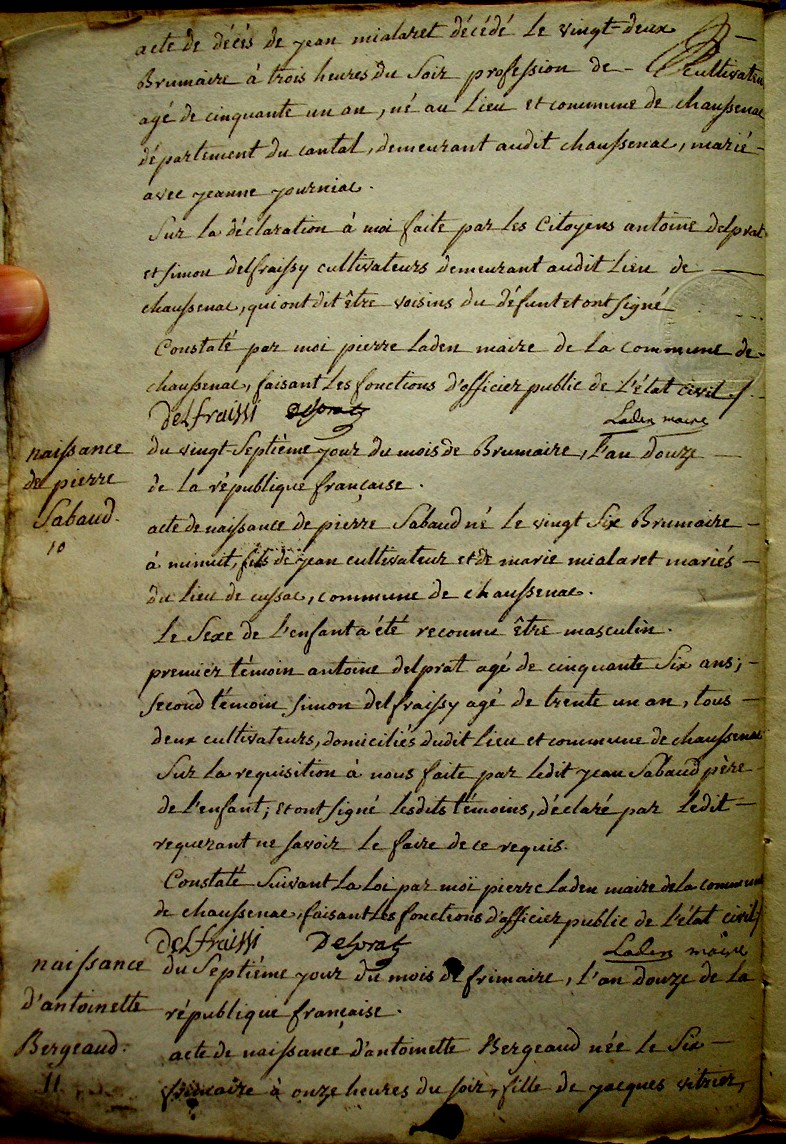 acte de décés de jean mialaret décédé le vingt-deux
Brumaire à trois heures du soir profession de - Cultivateur
agé de cinquante un an, né au Lieu et commune de chaussenac
département du cantal, demeurant audit chaussenac, marié -
avec jeanne journiac.
Sur la déclaration à moi faite par les Citoyens antoine delprat
et simon delfraissy cultivateurs demeurant audit Lieu de
chaussenac, qui ont dit être voisins du défunt et ont signé
Constaté par moi pierre Laden maire de la commune de
chaussenac, faisant les fonctions d'officier public de l'état civil
Delfraissi Delprat Laden maire
naissance
de pierre
Sabaud.
10
du vingt Septième jour du mois de Brumaire, l'an douze -
de la république française.
acte de naissance de pierre Sabaud né le vingt Six Brumaire -
à minuit, fils de jean cultivateur et de marie mialaret mariés -
du lieu de cussac, commune de chaussenac.
Le Sexe de l'enfant a été reconnu être masculin.
premier témoin antoine delprat agé de cinquante Six ans; -
Second témoin simon delfraissy agé de trente un an, tous -
deux cultivateurs, domiciliés dudit Lieu et commune de chaussenac
Sur la requisition à nous faite par ledit jean Sabaud père -
de l'enfant; et ont signé lesdits témoins, déclaré par ledit -
requerant ne savoir le faire de ce requis.
Constaté Suivant La Loi par moi pierre Laden maire de la commune
de chaussenac, faisant les fonctions d'officier public de l'état civil
Delfraissi Delprat Laden maire
naissance
d'antoinette
Bergeaud.
11
du Septiéme jour du mois de frimaire, l'an douze de la
république française.
acte de naissance d'antoinette Bergeaud née le Six -
frimaire à onze heures du soir, fille de jacques vitrier,